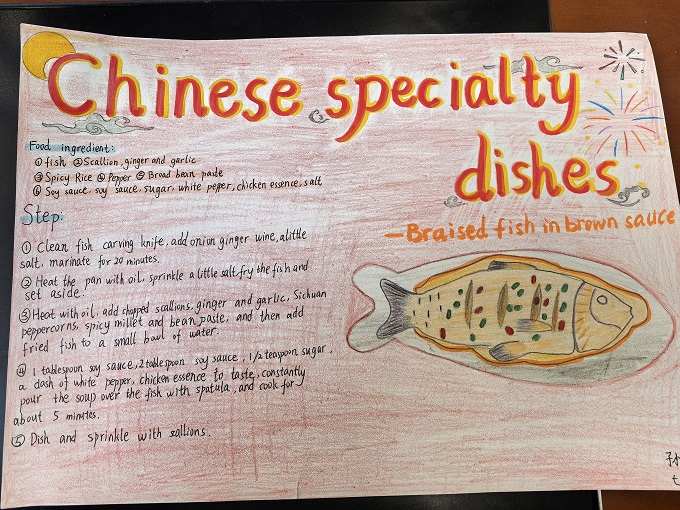 Chinese specialty
dishes
—Braised fish in brown sauce
Food ingredient:
① fish ② Scallion, ginger and garlic
③ Spicy Rice ④ Pepper ⑤ Broad bean paste
⑥ Soy sauce, soy sauce, sugar, white peper, chicken essence, salt
Step:
① Clean fish carving knife, add onion ginger wine, a little
salt, marinate for 20 minutes.
② Heat the pan with oil, sprinkle a little salt, fry the fish and
set aside.
③ Heat with oil, add chopped scallions, ginger and garlic, Sichuan
peppercorns, spicy millet and bean paste, and then add
fried fish to a small bowl of water.
④ 1 tablespoon soy sauce, 2 tablespoon soy sauce, 1/2 teaspoon sugar,
a dash of white pepper, chicken essence to taste, constantly
pour the soup over the fish with spatula, and cook for
about 5 minutes.
⑤ Dish and sprinkle with sallions.
孙